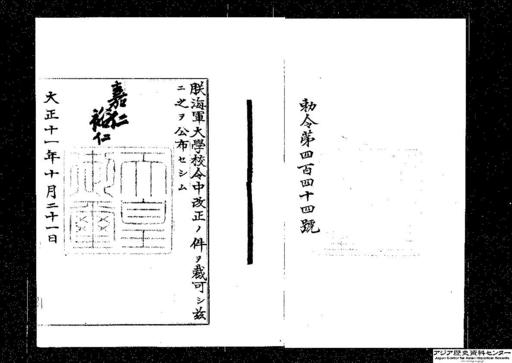 勅令第四百四十四號
朕海軍大學校令中改正ノ件ヲ裁可シ茲
ニ之ヲ公布セシム
嘉仁
裕仁
天皇
御璽
大正十一年十月二十一日
アジア歴史資料センター
Japan Center for Asian Historical Records